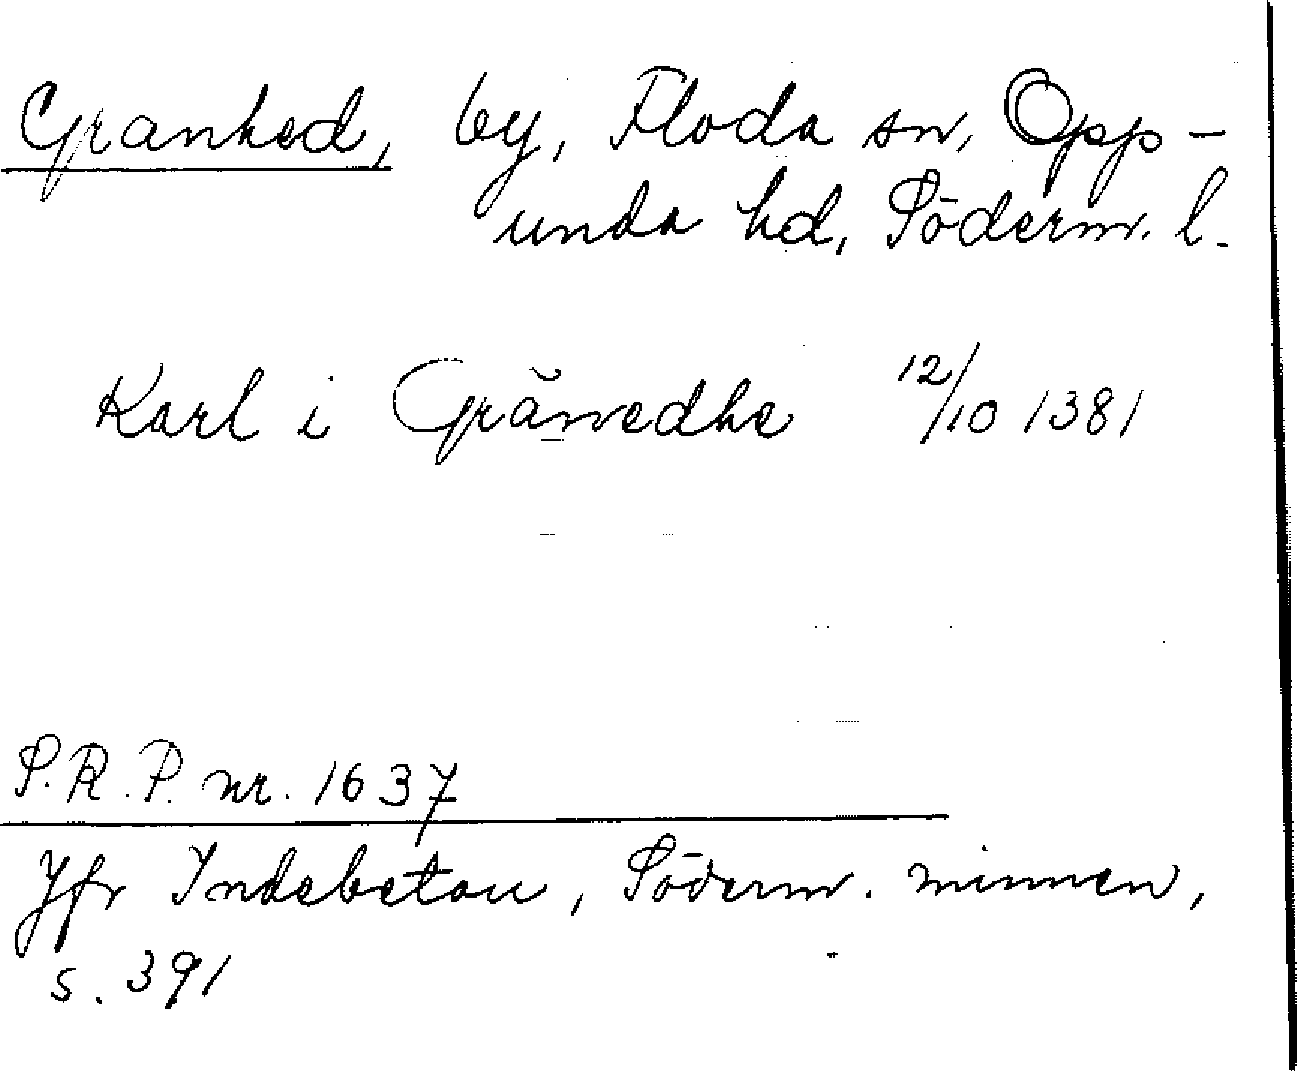 Granhed, by, Floda sn, Opp-
unda hd, Söderm. l.
Karl i Grănvedhe 12/10 1381
S.R.P. nr. 1637
Jfr Indebetou, Söderm. minnen,
s. 391